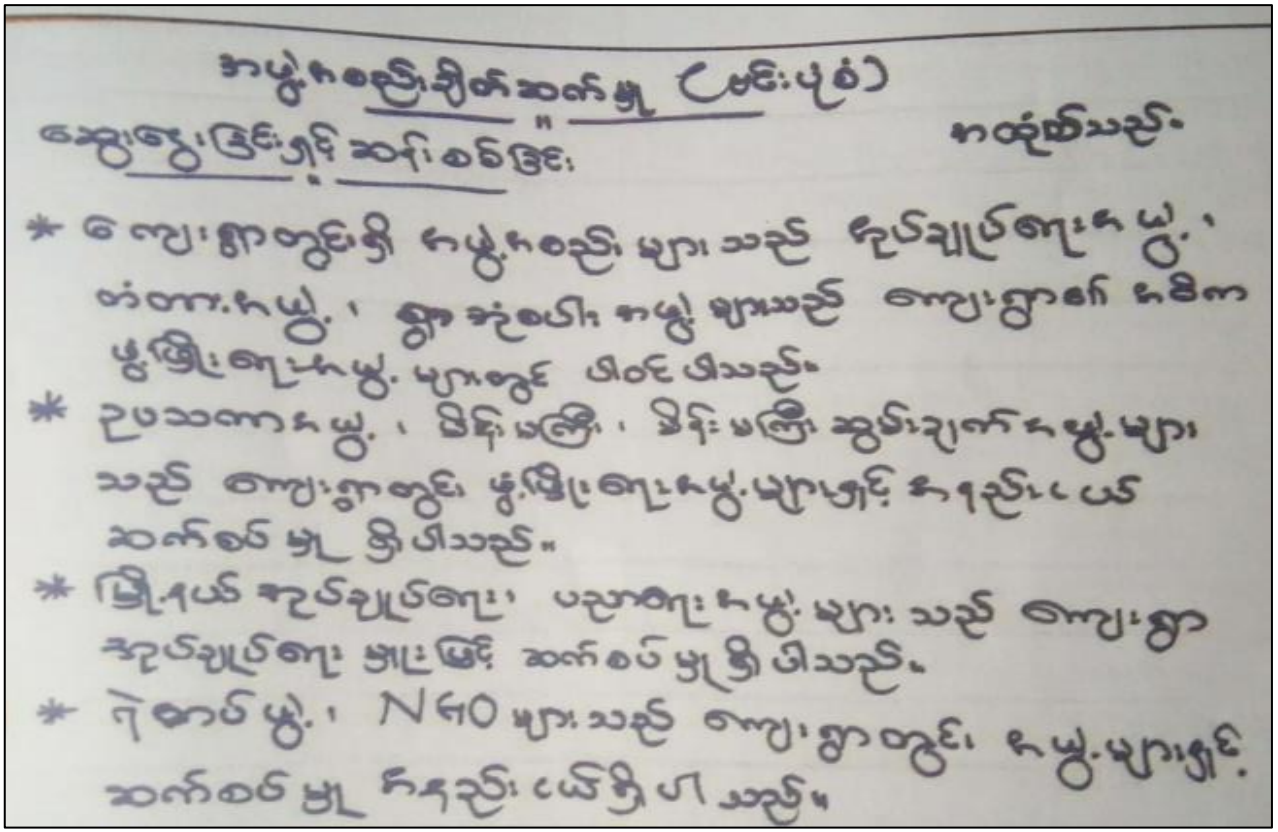 အဖွဲ့အစည်းချိတ်ဆက်မှု (ဗင်းပုံစံ)
ဆွေးနွေးခြင်းနှင့် ဆန်းစစ်ခြင်း
အထုံစံသည်။
* ကျေးရွာတွင်းရှိ အဖွဲ့အစည်းများသည် အုပ်ချုပ်ရေးအဖွဲ့၊
တံတားအဖွဲ့၊ ရွာသုံးစပါး အဖွဲ့များသည် ကျေးရွာ၏ အဓိက
ဖွံ့ဖြိုးရေးအဖွဲ့များတွင် ပါဝင်ပါသည်။
* ဥပသကာအဖွဲ့၊ မိန်းမကြီး၊ မိန်းမကြီးဆွမ်းချက်အဖွဲ့များ
သည် ကျေးရွာတွင်း ဖွံ့ဖြိုးရေးအဖွဲ့များနှင့် အနည်းငယ်
ဆက်စပ်မှု ရှိပါသည်။
* မြို့နယ်အုပ်ချုပ်ရေး၊ ပညာရေးအဖွဲ့များသည် ကျေးရွာ
အုပ်ချုပ်ရေးမှူးဖြင့် ဆက်စပ်မှုရှိပါသည်။
* ရဲတပ်ဖွဲ့၊ NGO များသည် ကျေးရွာတွင်း အဖွဲ့များနှင့်
ဆက်စပ်မှု အနည်းငယ်ရှိပါသည်။